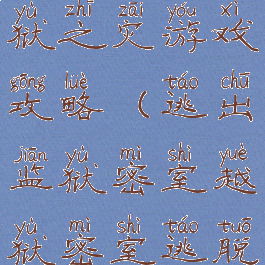 yù zhī zāi yóu xì
狱之灾游戏
gōng lüè táo chū
攻略（逃出
jiān yù mì shì yuè
监狱密室越
yù mì shì táo tuō
狱密室逃脱